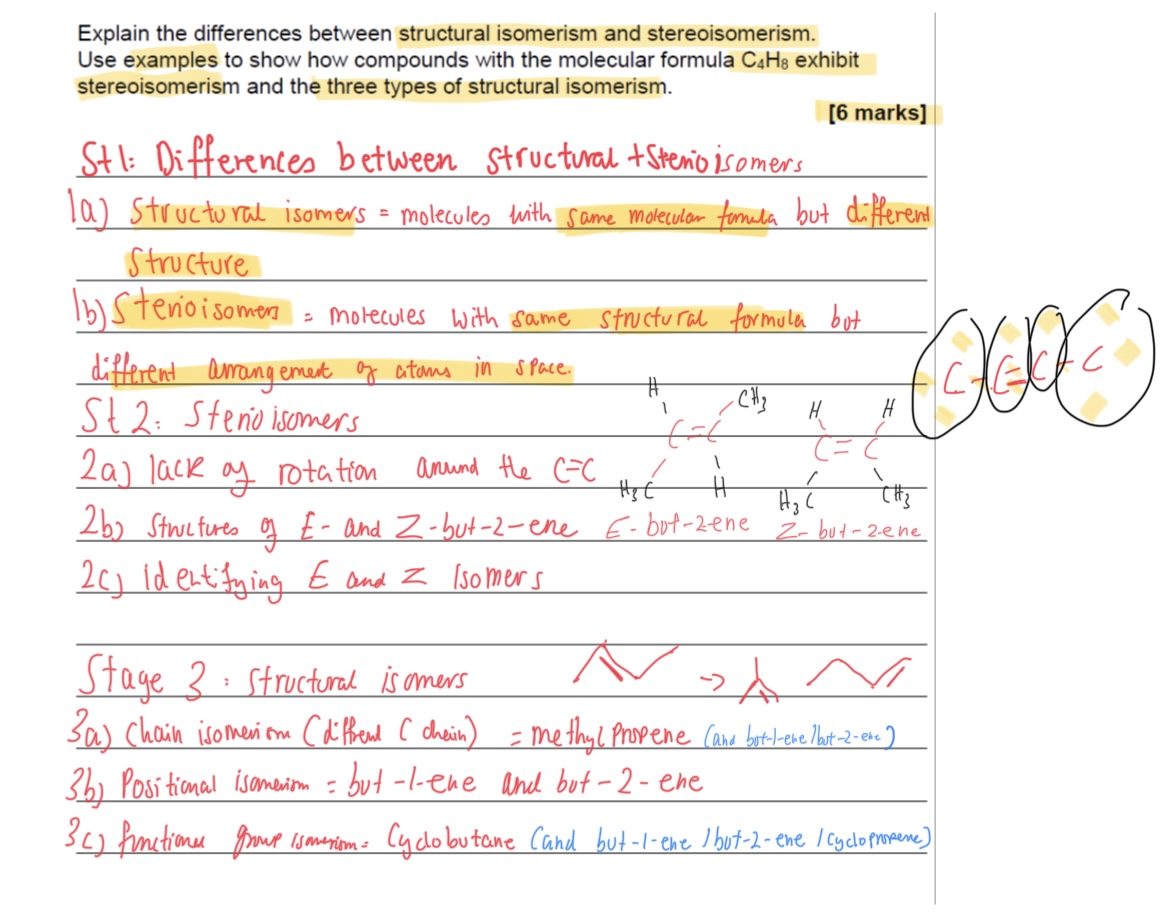 Explain the differences between structural isomerism and stereoisomerism.
Use examples to show how compounds with the molecular formula C₄H₈ exhibit
stereoisomerism and the three types of structural isomerism.
[6 marks]
St1: Differences between structural + Sterioisomers
1a) Structural isomers = molecules with same molecular fomula but different
Structure
1b) Sterioisomers = molecules with same structural formula but
different arrangement of atoms in space.
C - C = C - C
H CH₃ H H
St 2: Sterioisomers C=C C=C
2a) lack of rotation around the C=C H₃C H H₃C CH₃
2b) Structures of E- and Z-but-2-ene E-but-2-ene Z-but-2-ene
2c) Identifying E and Z Isomers
Stage 3: Structural isomers ->
3a) Chain isomerism (diffrent C chain) = methylpropene (and but-1-ene/but-2-ene)
3b) Positional isomerism = but-1-ene and but-2-ene
3c) functional group isomerism = Cyclobutane (and but-1-ene/but-2-ene/cyclopropene)